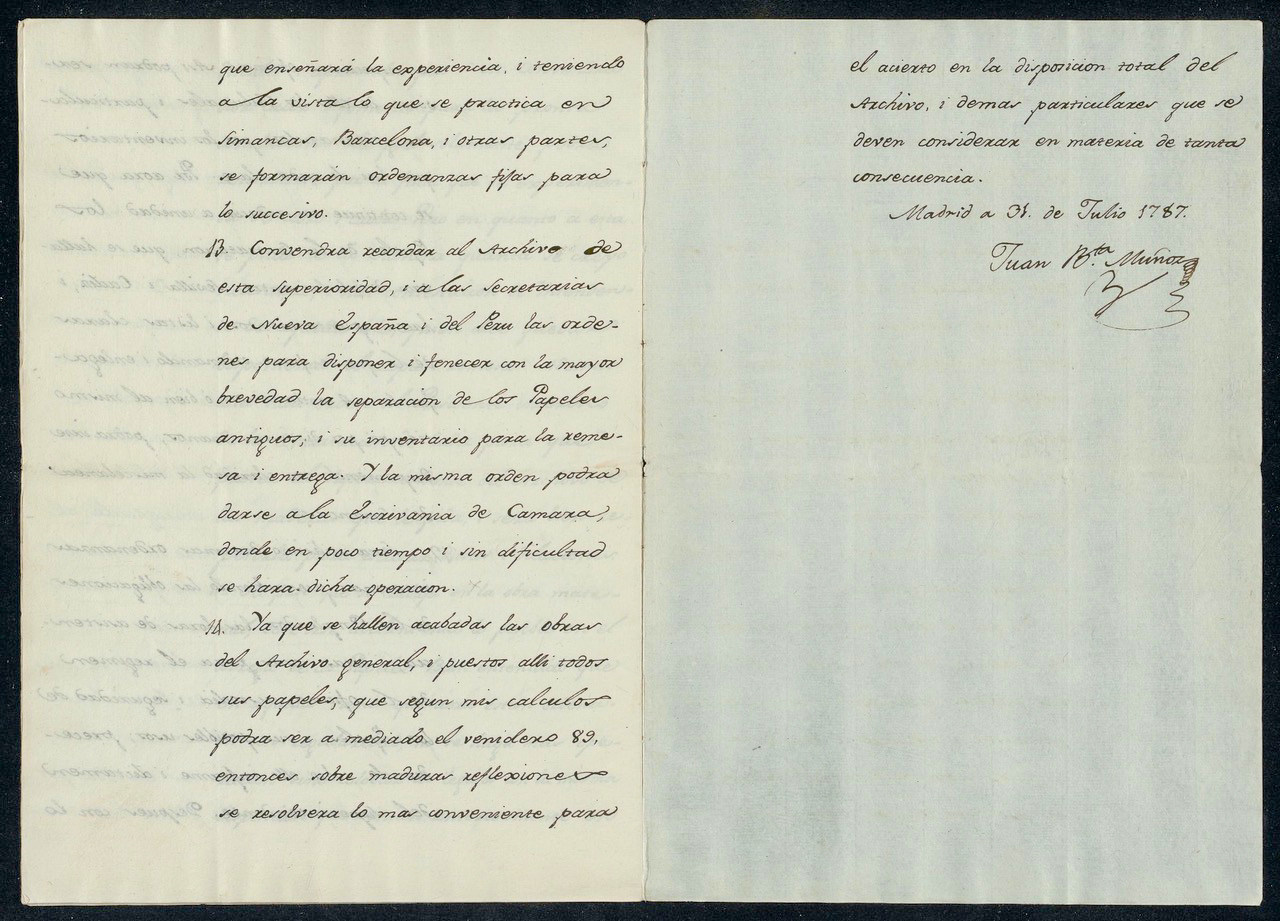 que enseñará la experiencia, i teniendo
a la vista lo que se practica en
Simancas, Barcelona, i otras partes,
se formarán ordenanzas fijas para
lo succesivo.
13. Convendra recordar al Archivo de
esta superioridad, i a las secretarias
de Nueva España i del Peru las orde-
nes para disponer i fenecer con la mayor
brevedad la separacion de los Papeles
antiguos, i su inventario para la reme-
sa i entrega. Y la misma orden podra
darse a la Escrivania de Camara,
donde en poco tiempo i sin dificultad
se hara dicha operacion.
14. Ya que se hallen acabadas las obras
del Archivo general, i puestos alli todos
sus papeles, que segun mis calculos
podra ser a mediado el venidero 89,
entonces sobre maduras reflexiones
se resolvera lo mas conveniente para
el acierto en la disposicion total del
Archivo, i demas particulares que se
deven considerar en materia de tanta
consecuencia.
Madrid a 31. de Julio 1787.
Juan B.ta Muñoz